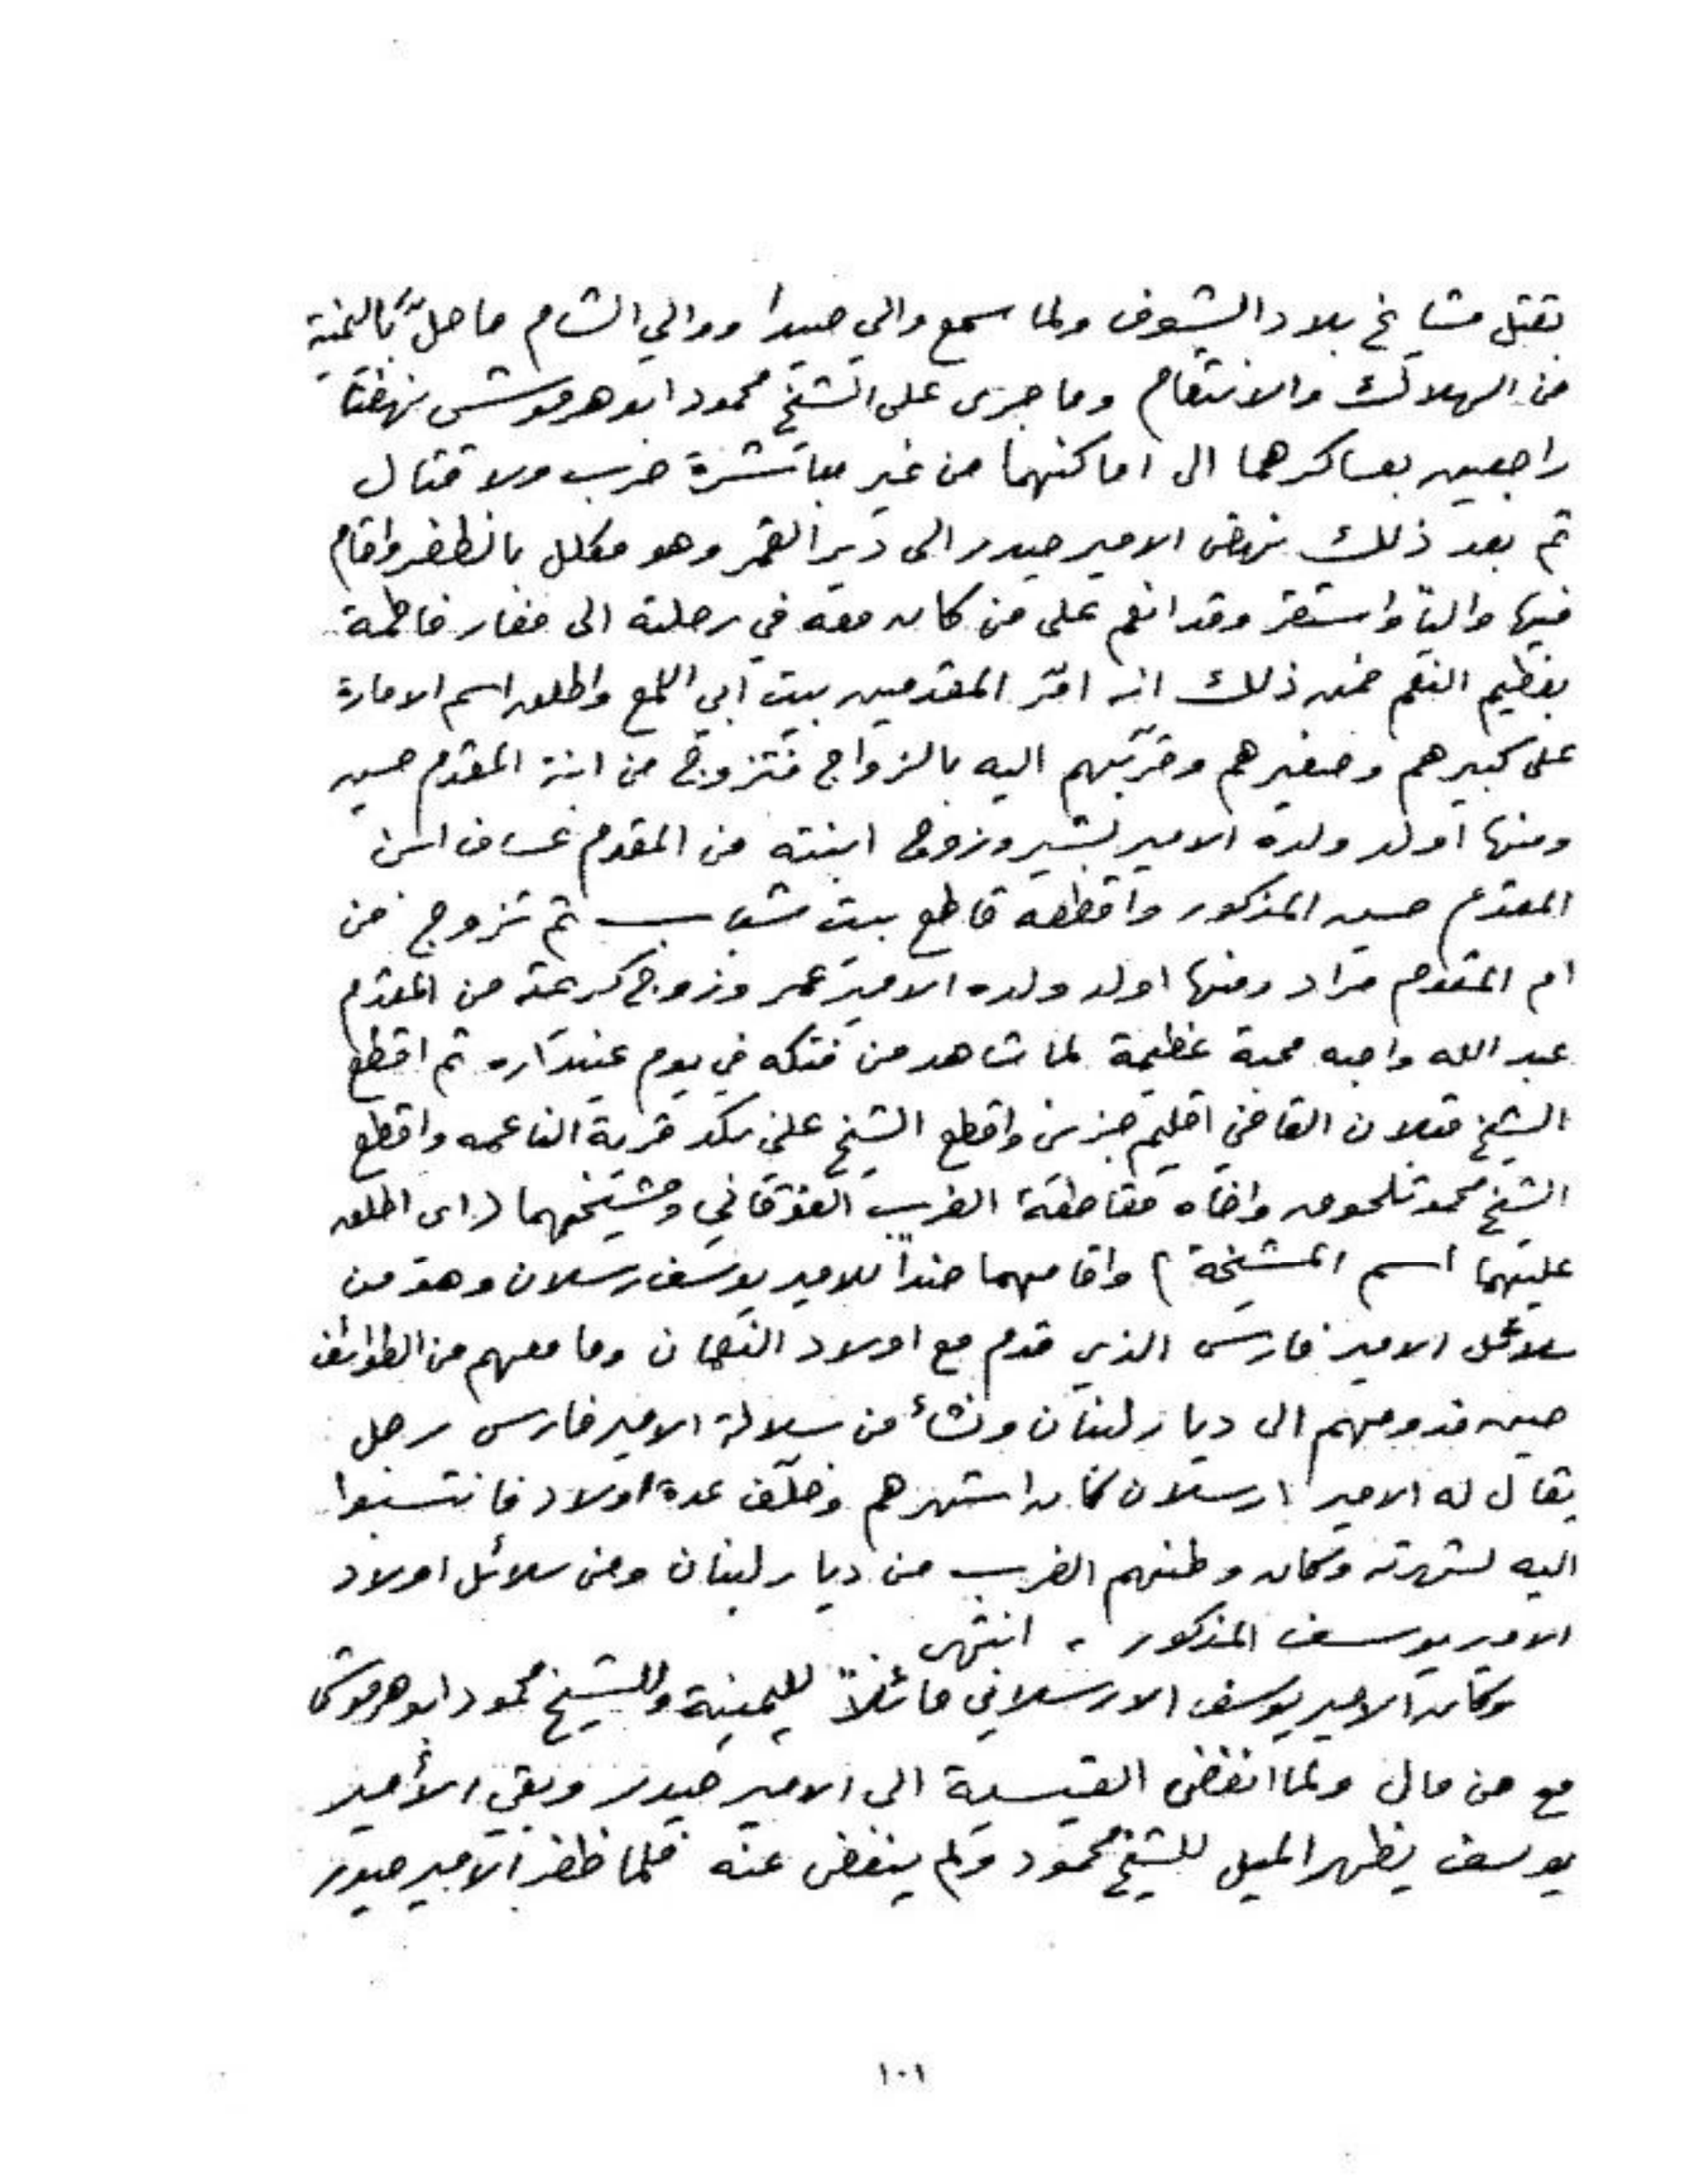 بقتل مشايخ بلاد الشوف ولما سمع والي صيدا ووالي الشام ما حلّ باليمنية
من الهلاك والانتقام وما جرى على الشيخ محمود ابو هرموش نهضا
راجعين بعساكرهما الى اماكنهما من غير مباشرة حرب ولا قتال
ثم بعد ذلك نهض الامير حيدر الى دير القمر وهو مكلل بالظفر واقام
فيها والياً واستقر وقد انعم على من كان معه في رحلته الى مغار فاطمة
بعظيم النعم فمن ذلك انه امّر المقدمين بيت ابي اللمع واطلق اسم الامارة
على كبيرهم وصغيرهم وقرّبهم اليه بالزواج فتزوج من ابنة المقدم حسين
ومنها اولد ولده الامير بشير وزوج ابنته من المقدم عساف ابن
المقدم حسين المذكور واقطعه قاطع بيت شباب ثم تزوج من
ام المقدم مراد ومنها اولد ولده الامير عمر وزوج كريمته من المقدم
عبد الله واحبه محبة عظيمة لما شاهد من فتكه في يوم عيندآره ثم اقطع
الشيخ قبلان القاضي اقليم جزين واقطع الشيخ علي نكد قرية الناعمه واقطع
الشيخ محمد تلحوق واخاه مقاطعة الغرب الفوقاني ومشيخهما (اي اطلق
عليهما اسم المشيخة) واقامهما ضداً للامير يوسف رسلان وهو من
سلائل الامير فارس الذي قدم مع اولاد النعمان وما معهم من الطوائف
حين قدومهم الى ديار لبنان ونشأ من سلالة الامير فارس رجل
يقال له الامير ارسلان كان اشهرهم وخلّف عدة اولاد فانتسبوا
اليه لشهرته وكان وطنهم الغرب من ديار لبنان ومن سلائل اولاد
الامير يوسف المذكور . انتهى
وكان الامير يوسف الارسلاني مائلاً لليمنية وللشيخ محمود ابو هرموش
مع من مال ولما انفض القيسية الى الامير حيدر وبقي الأمير
يوسف يظهر الميل للشيخ محمود ولم ينفض عنه فلما ظفر الامير حيدر
١٠١